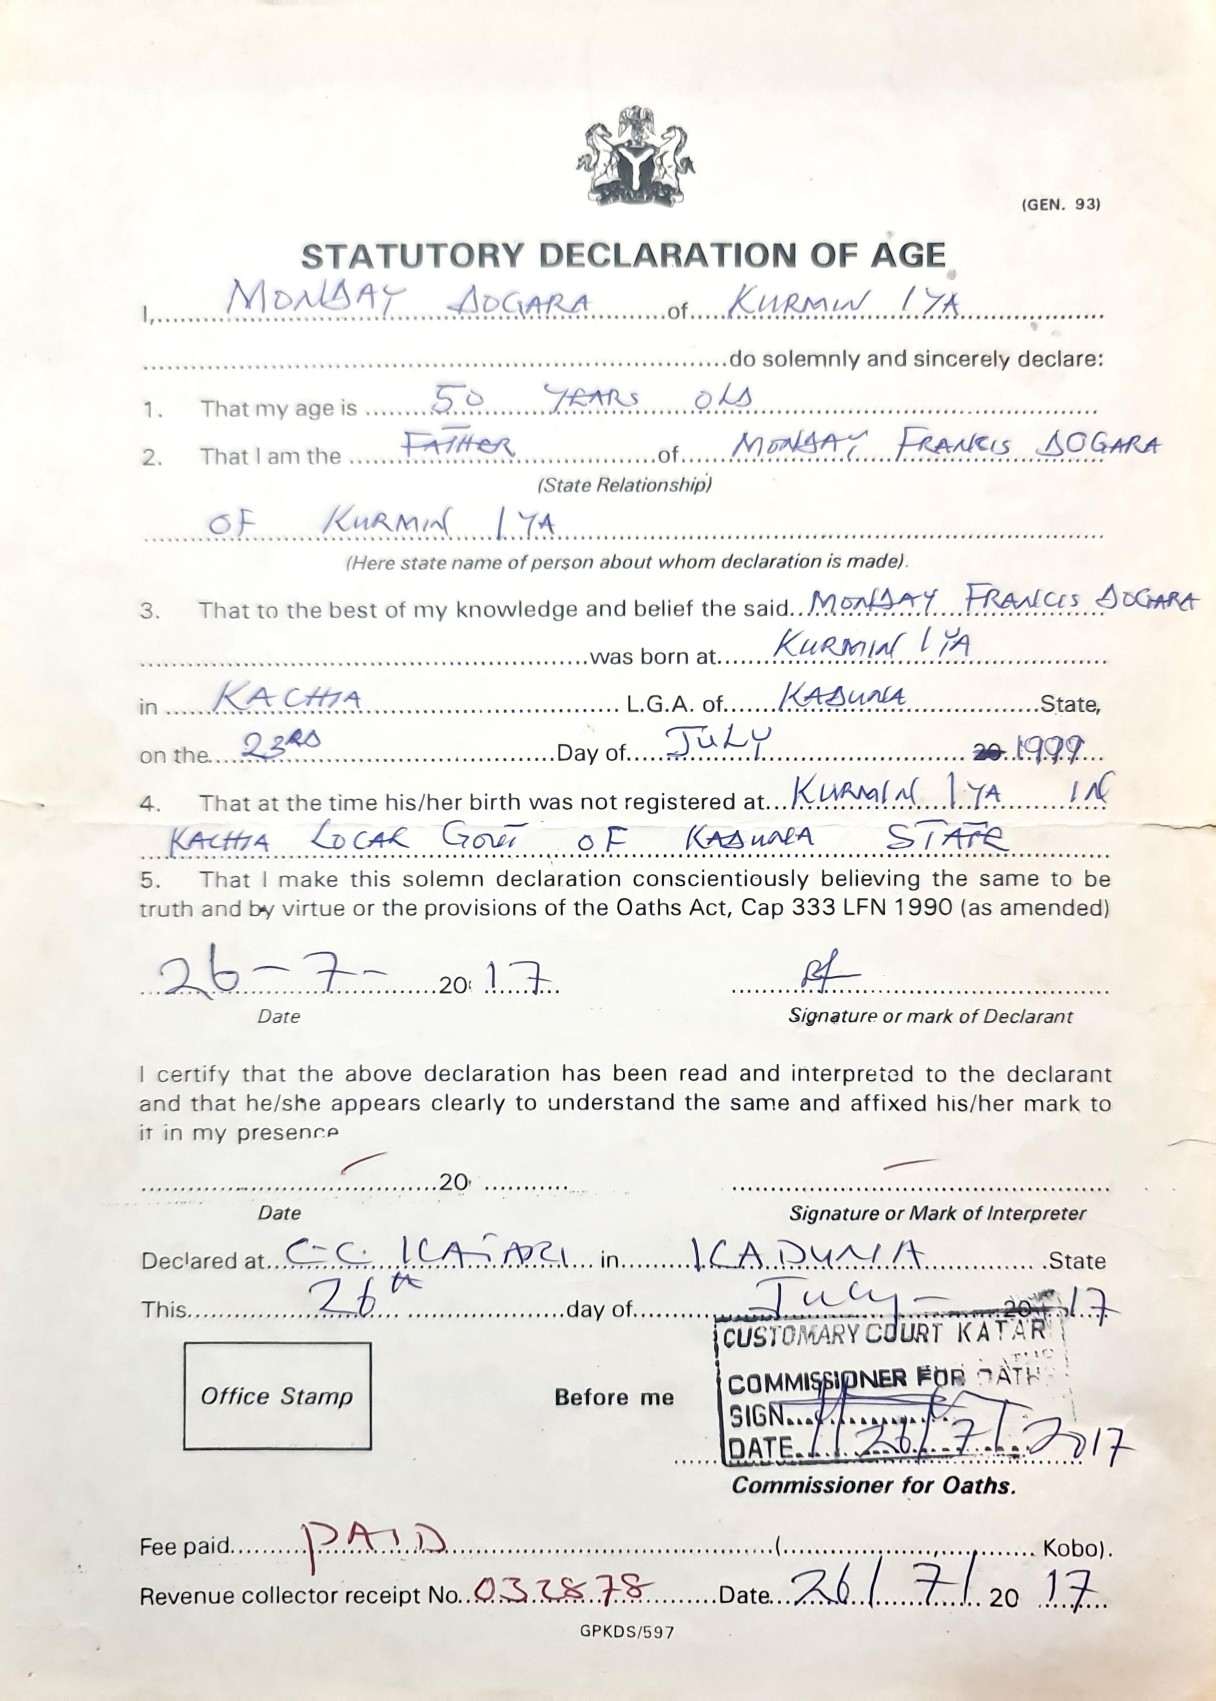 (GEN. 93)
STATUTORY DECLARATION OF AGE
I, MONDAY DOGARA of KURMIN IYA
do solemnly and sincerely declare:
1. That my age is 50 YEARS OLD
2. That I am the FATHER of MONDAY FRANCIS DOGARA
(State Relationship)
OF KURMIN IYA
(Here state name of person about whom declaration is made).
3. That to the best of my knowledge and belief the said MONDAY FRANCIS DOGARA
was born at KURMIN IYA
in KACHIA L.G.A. of KADUNA State,
on the 23RD Day of JULY 20 1999
4. That at the time his/her birth was not registered at KURMIN IYA IN
KACHIA LOCAL GOVT OF KADUNA STATE
5. That I make this solemn declaration conscientiously believing the same to be
truth and by virtue or the provisions of the Oaths Act, Cap 333 LFN 1990 (as amended)
26 - 7 - 20 17
Date Signature or mark of Declarant
I certify that the above declaration has been read and interpreted to the declarant
and that he/she appears clearly to understand the same and affixed his/her mark to
it in my presence
20
Date Signature or Mark of Interpreter
Declared at C.C. KATARI in KADUNA State
This 26th day of July 20 17
CUSTOMARY COURT KATARI
COMMISSIONER FOR OATHS
Office Stamp Before me
SIGN
DATE 26/7/2017
Commissioner for Oaths.
Fee paid PAID ( Kobo).
Revenue collector receipt No. 032878 Date 26/7/ 20 17
GPKDS/597